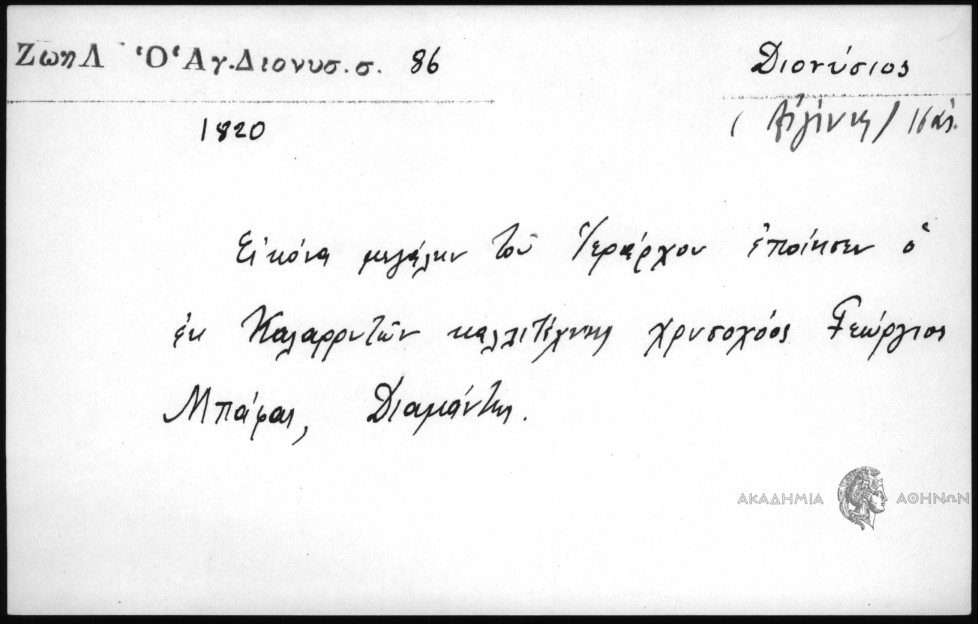 Ζωη Λ Ὁ Ἁγ.Διονυσ.σ. 86
Διονύσιος
1820
( Αἰγίνης )
Εἰκόνα μεγάλην τοῦ Ἱεράρχου ἐποίησεν ὁ
ἐκ Καλαρρυτῶν καλλιτέχνης χρυσοχόος Γεώργιος
Μπάφας, Διαμάντης.
ΑΚΑΔΗΜΙΑ ΑΘΗΝΩΝ